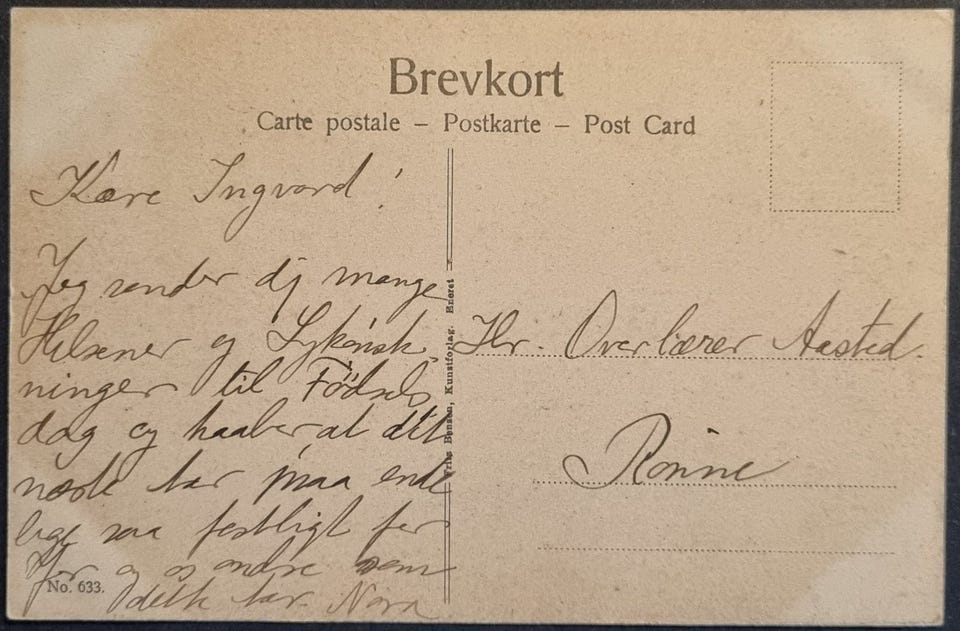 Brevkort
Carte postale – Postkarte – Post Card
Kære Ingvard!
Jeg sender dig mange
Hilsener og Lykønsk
ninger til Födsels
dag og haaber at dit
næste Aar maa ende
lige saa festligt for
og os andre som
dette Aar. Nora
Fritz Bensen, Kunstforlag. Eneret
Hr. Overlærer Aasted.
Rønne
No. 633.